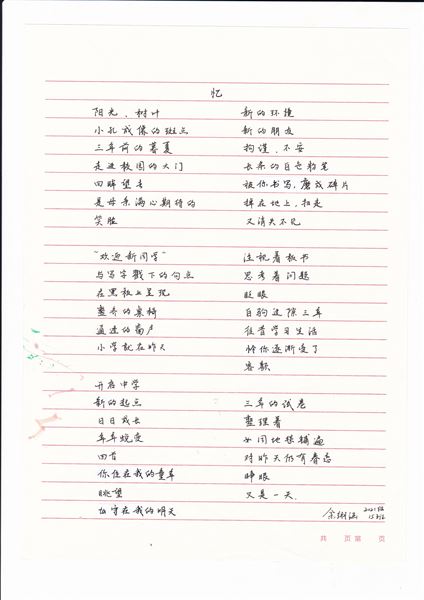 忆
阳光、树叶
小孔成像的斑点
三年前的暮夏
走进校园的大门
回眸望去
是母亲满心期待的
笑脸
“欢迎新同学”
与写字戳下的句点
在黑板上呈现
整齐的桌椅
通透的窗户
小学就在昨天
开启中学
新的起点
日日成长
年年蜕变
回首
你住在我的童年
眺望
在我的明天
新的环境
新的朋友
拘谨、不安
长条的白色粉笔
被你书写,磨成碎片
掉在地上,扫走
又消失不见
注视着板书
思考着问题
眨眼
白驹过隙三年
往昔学习生活
你逐渐变了
容颜
三年的试卷
整理着
地想
对昨天仍有眷恋
睁眼
又是一天.
2021级
15班
共 页 第 页